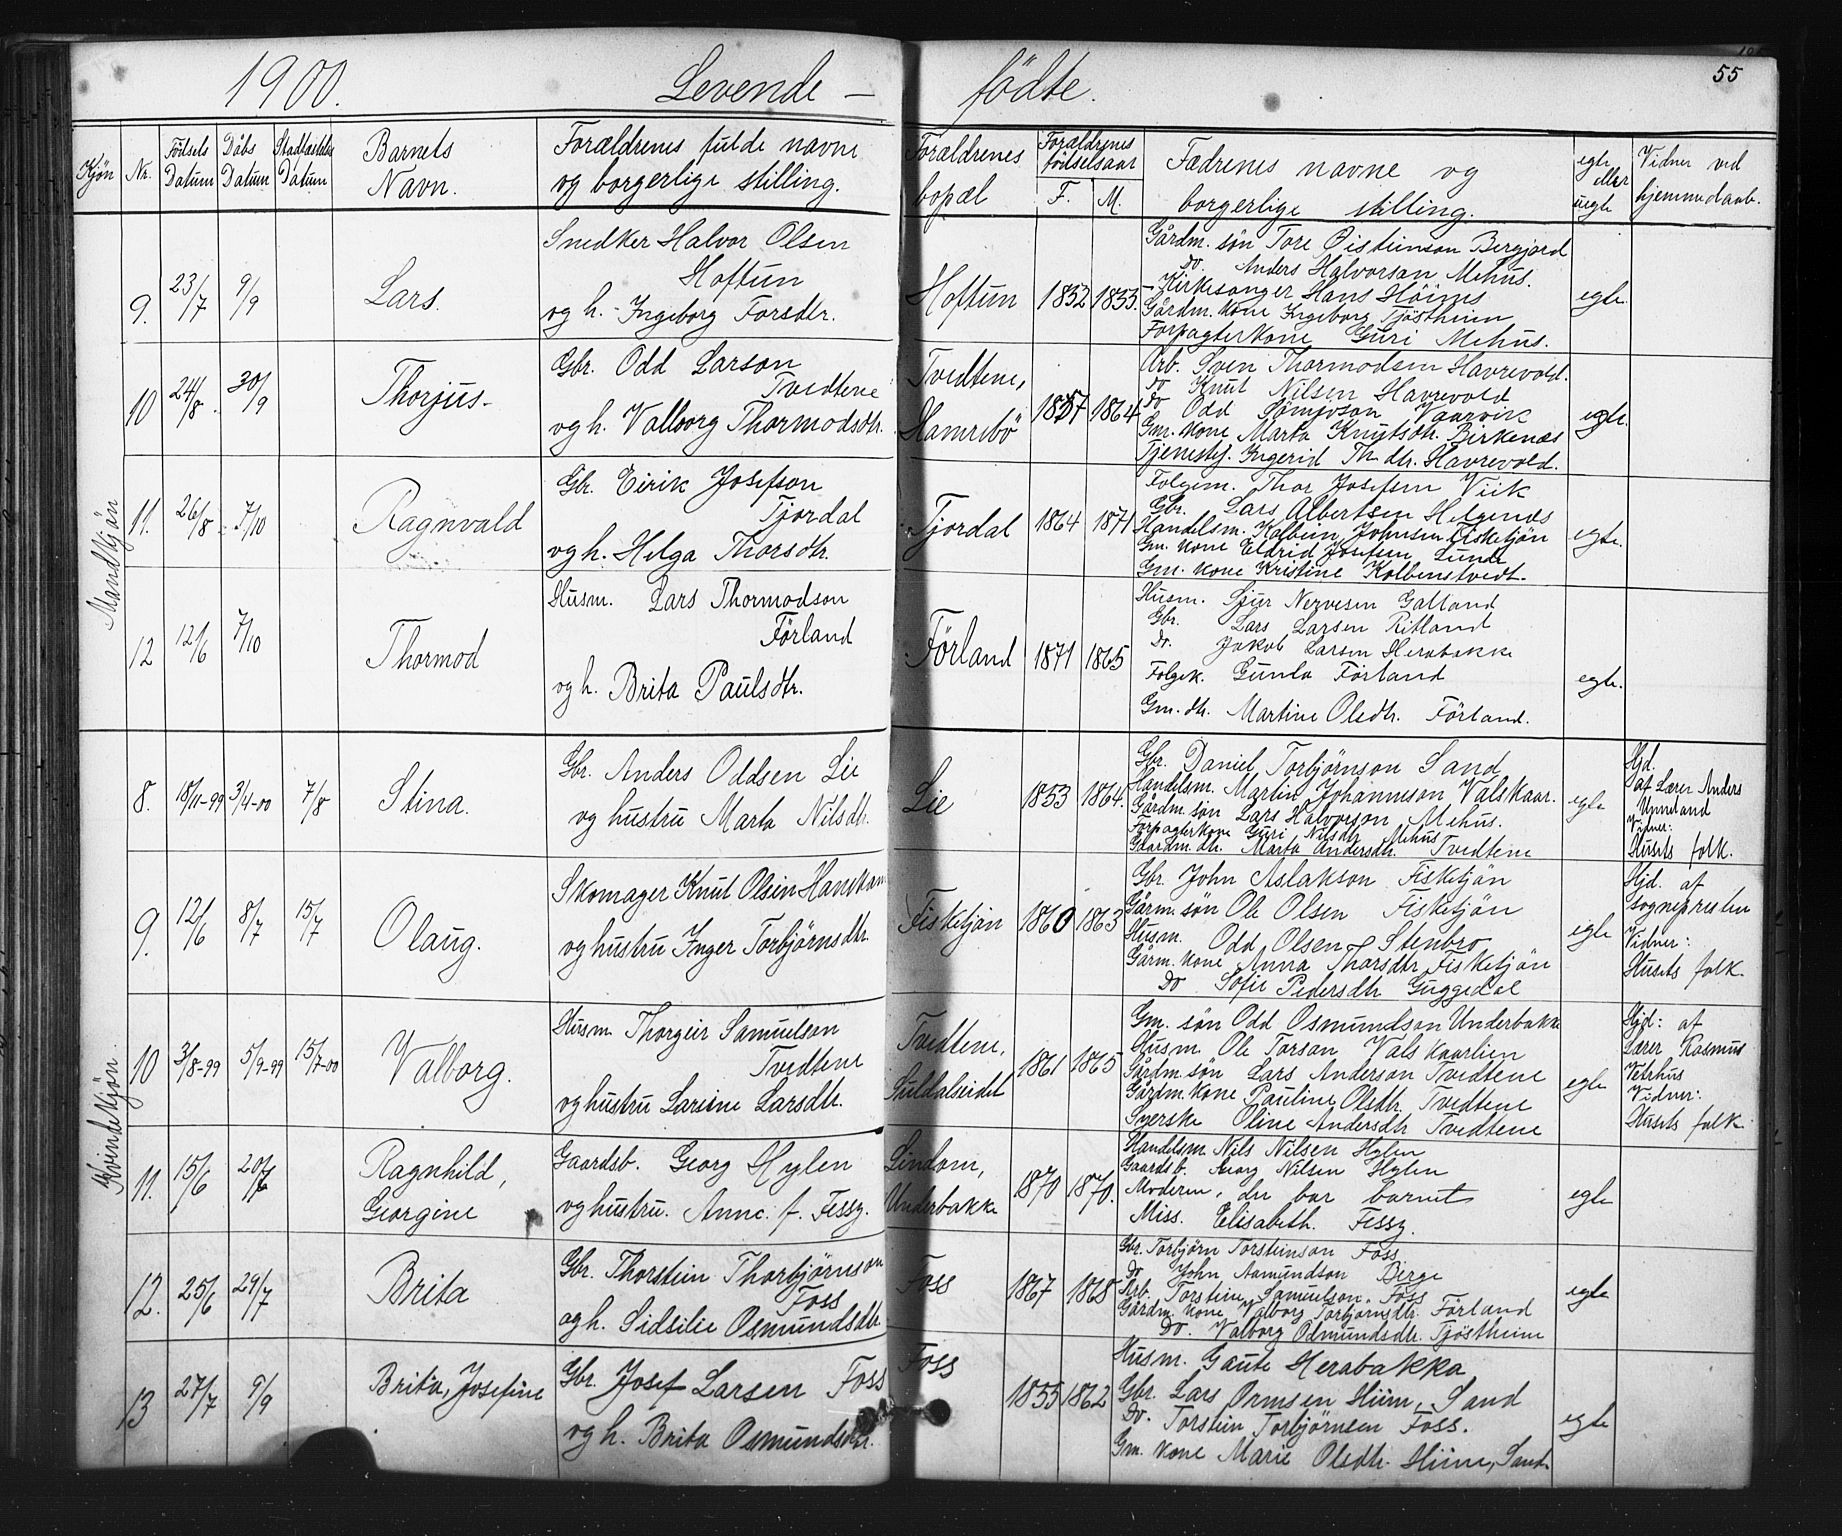 1900. Levende – födte. 55
Kjön Nr. Födsels Datum Dåbs Datum Stadfæstelses Datum Barnets Navn. Forældrenes fulde navne og borgerlige stilling. Forældrenes bopæl Forældrenes födselsaar F. M. Fædrenes navne og borgerlige stilling. egte eller uegte Vidner ved hjemmedaab.
Mandkjön
9. 23/7 9/9 Lars.
Snedker Halvor Olsen
Hoftun
og h. Ingeborg Larsdtr.
Hoftun 1852 1855.
Gårdm. sön Tore Öisteinson Bergjord
do. Anders Halvorsan Mehus.
Kirkesanger Hans Höines
Gårdm. kone Ingeborg Tjöstheim
Forpagterkone Guri Mehus.
egte.
10 24/8. 30/9 Thorjus
Gbr. Odd Larson
Tvedtene
og h. Valborg Thormodsdtr.
Tvedtene,
Hamrebö
1857 1864
Arb. Sven Thormodsen Havrevold.
do Knut Nilsen Havrevold
do Odd Vaarvik
Gm. kone Marta Knutsdtr. Birkenæs
Tjenestej. Ingerid Th. dtr. Havrevold.
egte.
11. 26/8 7/10 Ragnvald
Gbr. Eirik Josefson
Tjordal
og h. Helga Thorsdtr.
Tjordal 1864 1871
Folgem. Thor Josefsen Viik
Gbr. Lars Albertsen Helgenæs
Handelsm. Kolbein Johnsen Fisketjön
Gm. kone Eldrid Josefsen Lunde
Gm. kone Kristine Kolbenstvedt.
egte.
12 12/6 7/10 Thormod
Husm. Lars Thormodson
Förland
og h. Brita Paulsdtr.
Förland 1871 1865
Husm. Sjur Nervesen Galland
Gbr. Lars Larsen Ritland
Do. Jakob Larsen Herabakke
Folgek. Gunla Förland
Gm. dtr. Martine Olsdtr. Förland.
egte.
Kvindekjön.
8. 18/11-99 3/4-00 7/8 Stina.
Gbr. Anders Oddsen Lie
og hustru Marta Nilsdtr.
Lie 1853 1864.
Gbr. Daniel Torbjörnson Sand
Handelsm. Martin Johanneson Valskaar.
Gårdm. sön Lars Halvorson, Mehus.
Forpagterkone Guri Nilsdtr. Mehus
Gaardm. dtr. Marta Andersdtr. Tvedtene
egte
Hjd.
af Lærer Anders
Unneland
Vidner:
Husets folk.
9. 12/6 8/7 15/7 Olaug.
Skomager Knut Olsen Hanekam
og hustru Inger Torbjörnsdtr.
Fisketjön 1860 1863
Gbr. John Aslakson Fisketjön
Gårm. sön Ole Olsen Fisketjön
Husm. Odd Olsen Stenbro
Gårm. kone Anna Thorsdtr Fisketjön
Do Sofie Pedersdtr Guggedal
egte
Hjd. af
sognepresten
Vidner:
Husets folk.
10 3/8-99 5/9-99 15/7-00 Valborg.
Husm. Thorgeir Samuelsen
Tvedtene
og hustru Larsine Larsdtr.
Tvedtene,
Suldalseidet
1861 1865
Gm. sön Odd Osmundson Underbakke
Husm. Ole Torson Valskaarlien
Gårdm. sön Lars Anderson Tvedtene
Gårdm. kone Pauline Olsdtr. Tvedtene
Syerske Oline Andersdtr Tvedtene
egte
Hjd: af
Lærer Rasmus
Vetrhus
Vidner:
Husets folk
11. 15/6 20/7 Ragnhild,
Georgine
Gaardsb. Georg Hylen
og hustru. Anne. f. Fessy.
Lindom,
Underbakke
1870 1870.
Handelsm. Nils Nilsen Hylen
Gaardsb. Georg Nilsen Hylen
Moderen, der bar barnet
Miss. Elisabeth. Fessy.
egte
12. 25/6 29/7 Brita
Gbr. Thorstein Thorbjörnson
Foss
og h. Sidsilie Osmundsdtr
Foss 1867 1868
Gbr. Torbjörn Torsteinson Foss
Do John Aamundson Berge
Arb. Torstein Samuelson Foss
Gårdm. kone Valborg Torbjörnsdtr. Förland
Do. Valborg Odmundsdtr. Tjöstheim
egte
13 27/7 9/9 Brita, Josefine
Gbr. Josef Larsen Foss
og h. Brita Osmundsdtr.
Foss
1855 1862
Husm. Gaute Herabakka
Gbr. Lars Ormsen Hiim, Sand
Do. Torstein Torbjörnsen Foss.
Gm. kone Marie Olsdtr. Hiim, Sand.
egte